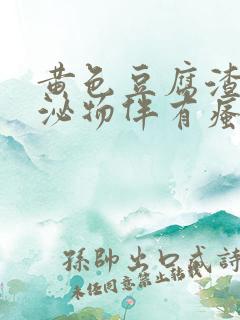 黄色豆腐渣
泌物伴有瘙
孫帥出口成詩
未经同意禁止转载